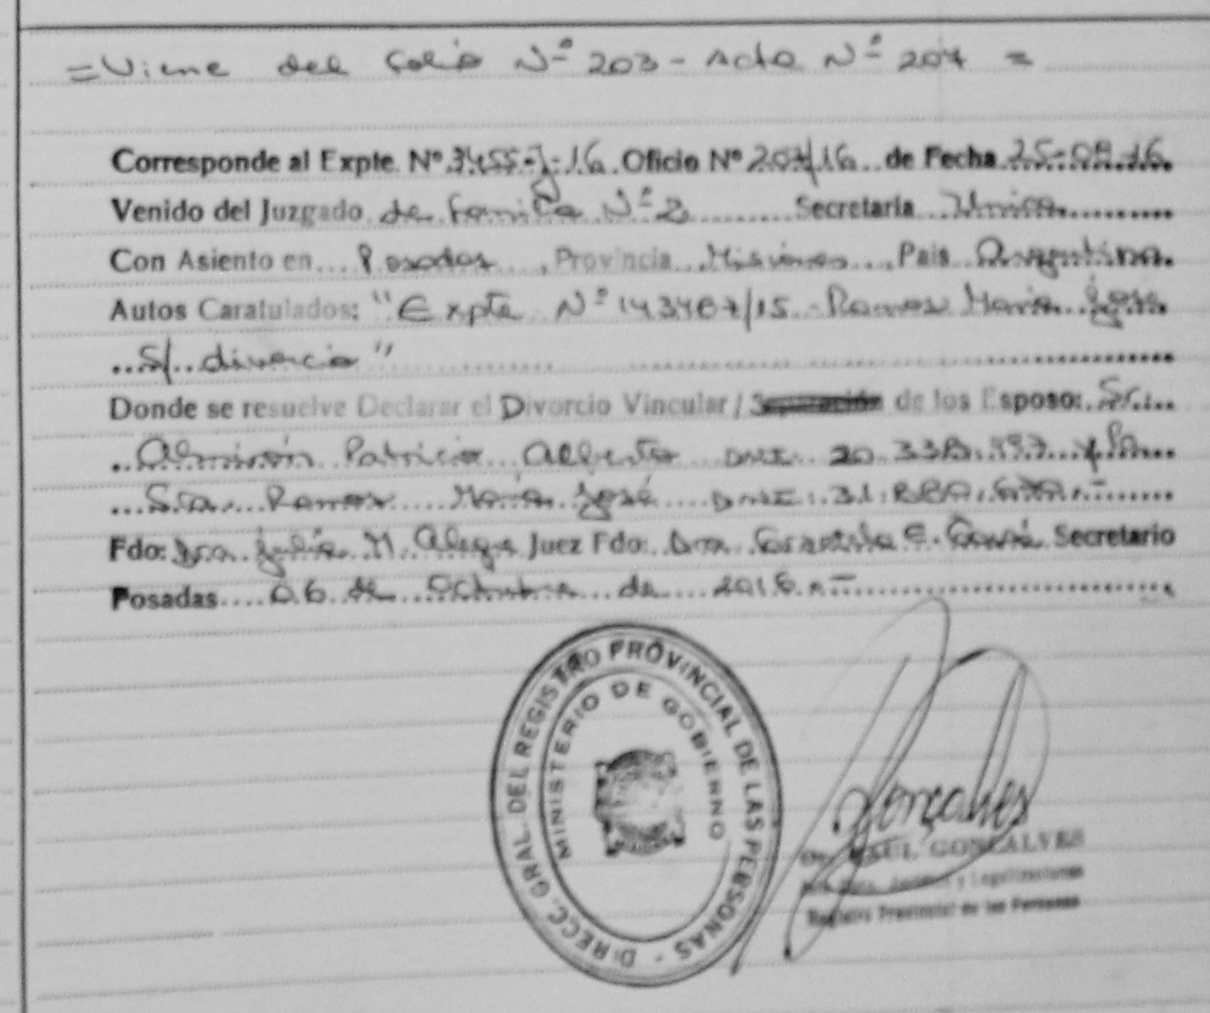 =Viene del folio Nº 203 - Acta Nº 204 =
Corresponde al Expte. Nº 3455-J-16 Oficio Nº 207/16 de Fecha 25-08-16.
Venido del Juzgado de Familia Nº 2 Secretaria Unica
Con Asiento en Posadas Provincia Misiones Pais Argentina.
Autos Caratulados: "Expte Nº 143467/15 - Ramos Maria Jose
S/ divorcio"
Donde se resuelve Declarar el Divorcio Vincular / Separación de los Esposo: Sr.
Almirón Patricio Alberto DNI 20.338. y la
Sra. Ramos María José DNI: 31.
Fdo: Dra. Julia M. Alegre Juez Fdo: Dra. E. Secretario
Posadas 06 de Octubre de 2016.-
DIRECC. GRAL. DEL REGISTRO PROVINCIAL DE LAS PERSONAS -
MINISTERIO DE GOBIERNO
Gonçalves
Dr. RAUL GONCALVES
Jurídico y Legalizaciones
Registro Provincial de las Personas